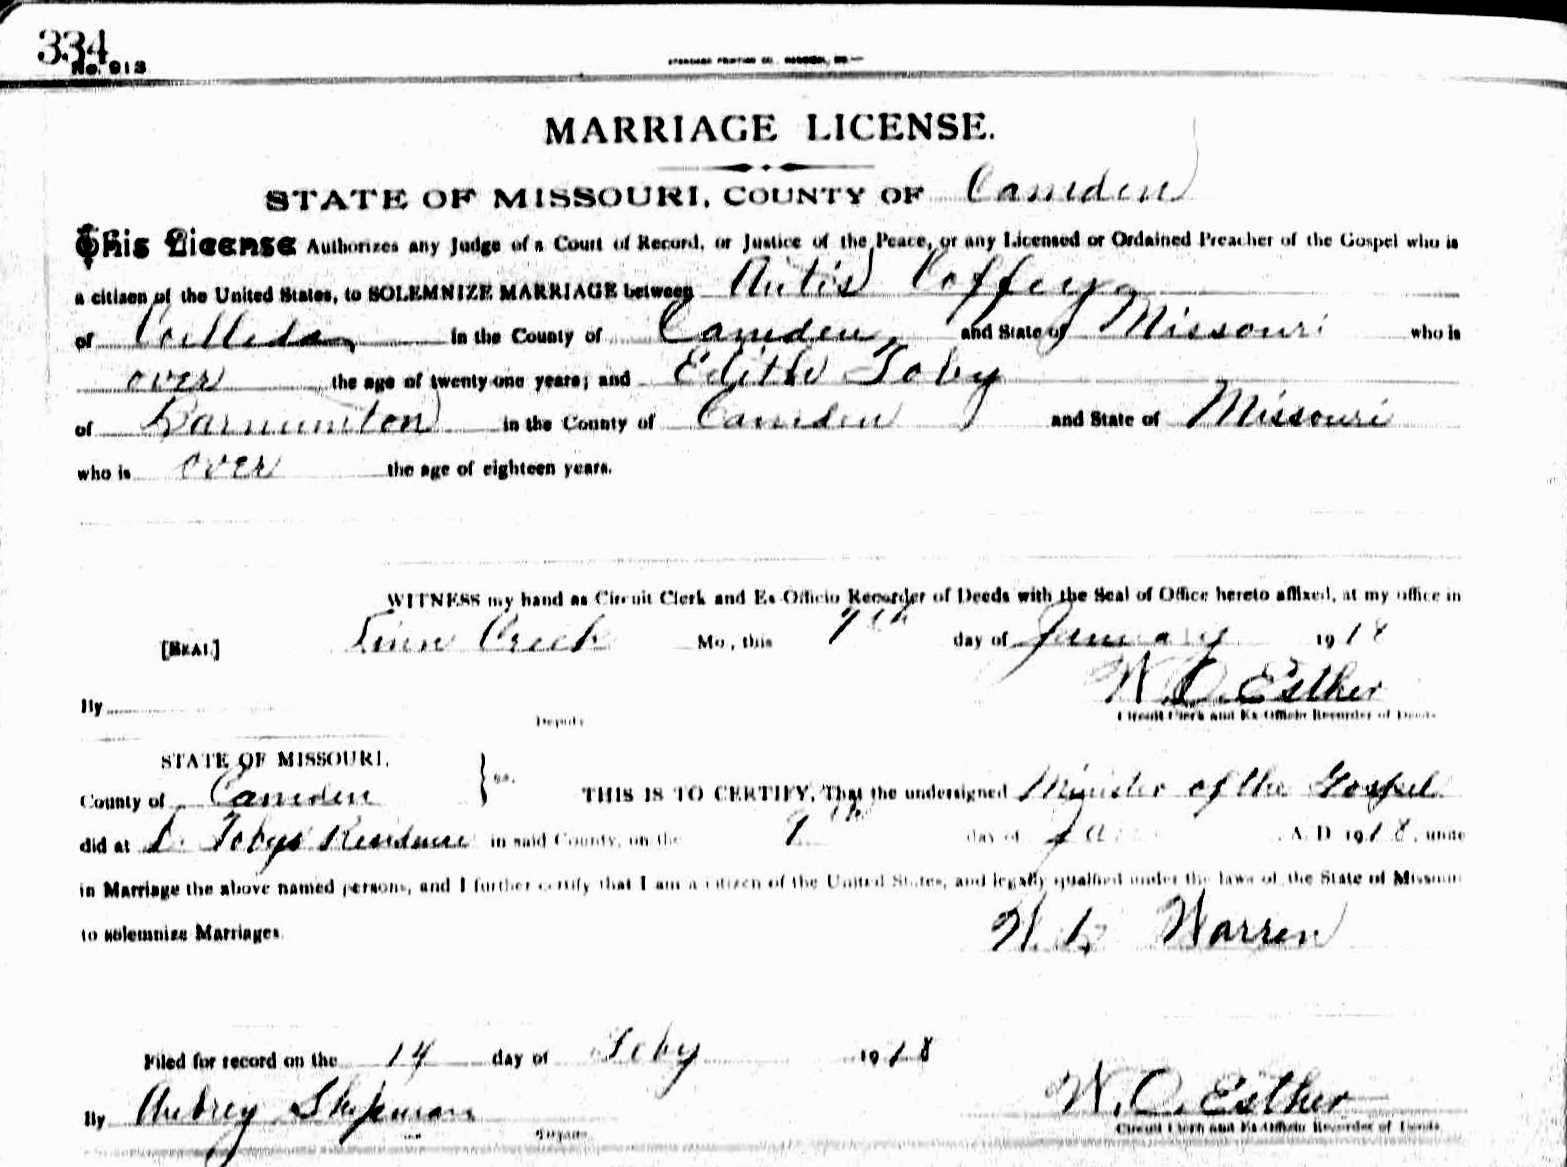 334
No. 913
MARRIAGE LICENSE.
STATE OF MISSOURI, COUNTY OF Camden
This License Authorizes any Judge of a Court of Record, or Justice of the Peace, or any Licensed or Ordained Preacher of the Gospel who is
a citizen of the United States, to SOLEMNIZE MARRIAGE between Autis Coffey
of in the County of Camden and State of Missouri who is
over the age of twenty-one years; and Edith Toby
of Barnumton in the County of Camden and State of Missouri
who is over the age of eighteen years.
WITNESS my hand as Circuit Clerk and Ex-Officio Recorder of Deeds with the Seal of Office hereto affixed, at my office in
[SEAL] Linn Creek Mo., this 7th day of January 1918
W. O. Esther
By Deputy Circuit Clerk and Ex-Officio Recorder of Deeds
STATE OF MISSOURI,
County of Camden } ss. THIS IS TO CERTIFY, That the undersigned Minister of the Gospel
did at Tobys Residence in said County, on the 9th day of Jan A. D. 1918, unite
in Marriage the above named persons, and I further certify that I am a citizen of the United States, and legally qualified under the laws of the State of Missouri
to solemnize Marriages. Warren
Filed for record on the 14 day of Feby 1918
By Aubrey Shipman W. O. Esther
Circuit Clerk and Ex-Officio Recorder of Deeds